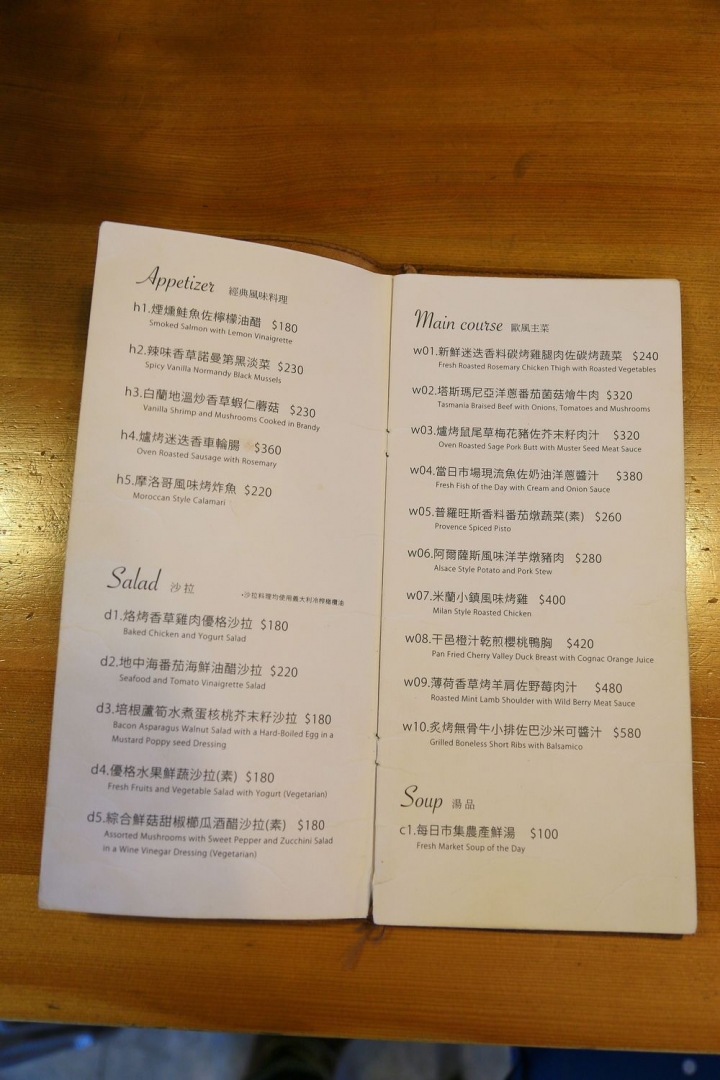 Appetizer 經典風味料理
h1.煙燻鮭魚佐檸檬油醋 $180
Smoked Salmon with Lemon Vinaigrette
h2.辣味香草諾曼第黑淡菜 $230
Spicy Vanilla Normandy Black Mussels
h3.白蘭地溫炒香草蝦仁蘑菇 $230
Vanilla Shrimp and Mushrooms Cooked in Brandy
h4.爐烤迷迭香車輪腸 $360
Oven Roasted Sausage with Rosemary
h5.摩洛哥風味烤炸魚 $220
Moroccan Style Calamari
Salad 沙拉
•沙拉料理均使用義大利冷榨橄欖油
d1.烙烤香草雞肉優格沙拉 $180
Baked Chicken and Yogurt Salad
d2.地中海番茄海鮮油醋沙拉 $220
Seafood and Tomato Vinaigrette Salad
d3.培根蘆筍水煮蛋核桃芥末籽沙拉 $180
Bacon Asparagus Walnut Salad with a Hard-Boiled Egg in a
Mustard Poppy seed Dressing
d4.優格水果鮮蔬沙拉(素) $180
Fresh Fruits and Vegetable Salad with Yogurt (Vegetarian)
d5.綜合鮮菇甜椒櫛瓜酒醋沙拉(素) $180
Assorted Mushrooms with Sweet Pepper and Zucchini Salad
in a Wine Vinegar Dressing (Vegetarian)
Main course 歐風主菜
w01.新鮮迷迭香料碳烤雞腿肉佐碳烤蔬菜 $240
Fresh Roasted Rosemary Chicken Thigh with Roasted Vegetables
w02.塔斯瑪尼亞洋蔥番茄菌菇燴牛肉 $320
Tasmania Braised Beef with Onions, Tomatoes and Mushrooms
w03.爐烤鼠尾草梅花豬佐芥末籽肉汁 $320
Oven Roasted Sage Pork Butt with Muster Seed Meat Sauce
w04.當日市場現流魚佐奶油洋蔥醬汁 $380
Fresh Fish of the Day with Cream and Onion Sauce
w05.普羅旺斯香料番茄燉蔬菜(素) $260
Provence Spiced Pisto
w06.阿爾薩斯風味洋芋燉豬肉 $280
Alsace Style Potato and Pork Stew
w07.米蘭小鎮風味烤雞 $400
Milan Style Roasted Chicken
w08.干邑橙汁乾煎櫻桃鴨胸 $420
Pan Fried Cherry Valley Duck Breast with Cognac Orange Juice
w09.薄荷香草烤羊肩佐野莓肉汁 $480
Roasted Mint Lamb Shoulder with Wild Berry Meat Sauce
w10.炙烤無骨牛小排佐巴沙米可醬汁 $580
Grilled Boneless Short Ribs with Balsamico
Soup 湯品
c1.每日市集農產鮮湯 $100
Fresh Market Soup of the Day